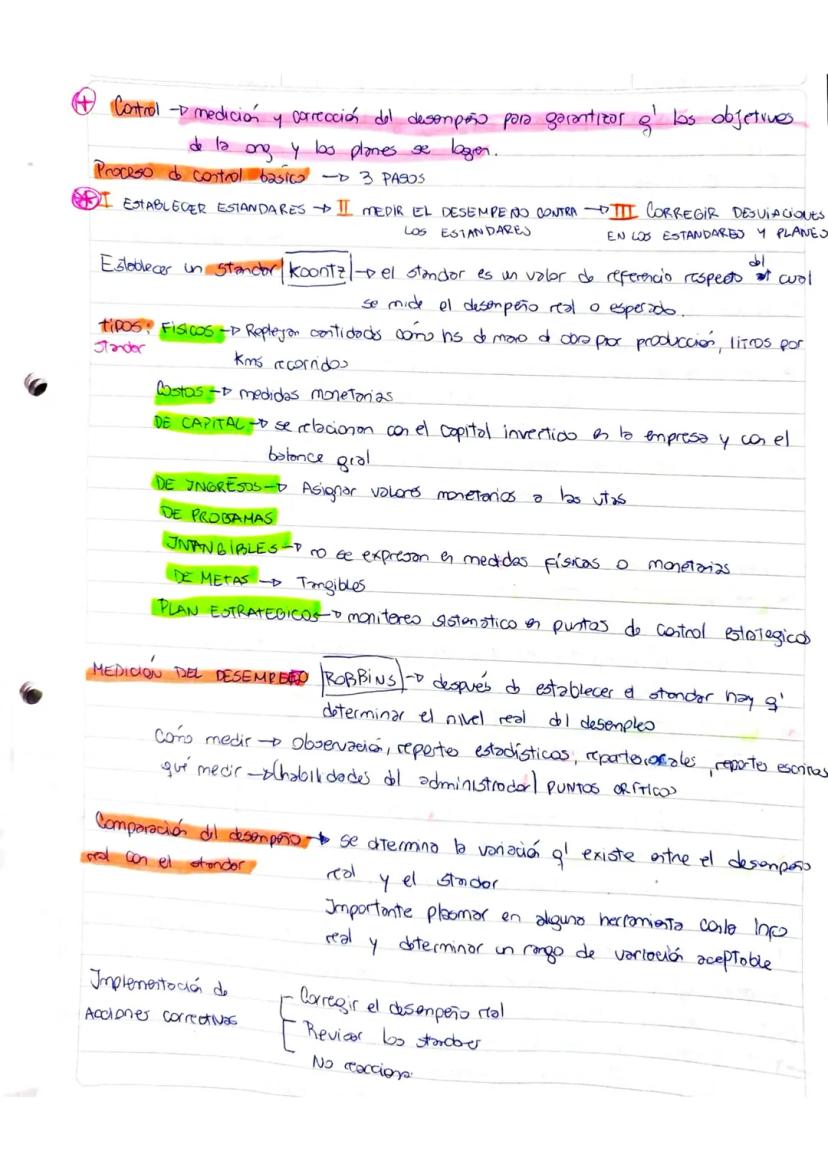 + Control → medición y corrección del desempeño para garantizar q' los objetivos
de la org y los planes se logren.
Proceso d control básico → 3 PASOS
* I ESTABLECER ESTANDARES → II MEDIR EL DESEMPEÑO CONTRA → III CORREGIR DESVIACIONES
LOS ESTANDARES EN LOS ESTANDARES Y PLANES
Establecer un standar Koontz → el standar es un valor de referencia respecto del cual
se mide el desempeño real o esperado.
TIPOS: FISICOS → Reflejan cantidades como hs de mano d obra por producción, litros por
standar kms recorridos
Costos → medidas monetarias
DE CAPITAL → se relacionan con el capital invertido en la empresa y con el
balance gral
DE INGRESOS → Asignar valores monetarios a las vtas
DE PROGAMAS
INTANGIBLES → no se expresan en medidas físicas o monetarias
DE METAS → Tangibles
PLAN ESTRATEGICOS → monitereo sistemático en puntos de control estrategicos
MEDICIÓN DEL DESEMPEÑO ROBBINS → después d establecer el standar hay q'
determinar el nivel real dl desempleo
Cómo medir → observación, reportes estadísticos, reportes orales, reportes escritas
qué medir → (habilidades del administrador) PUNTOS CRÍTICOS
Comparación dil desempeño → se dtermina la variación q' existe entre el desempeño
real con el standar real y el standar
Importante plasmar en alguna herramienta con la info
real y determinar un rango de variación aceptable
Implementación de Corregir el desempeño real
Acciones correctivas Revisar los standares
No reaccionar